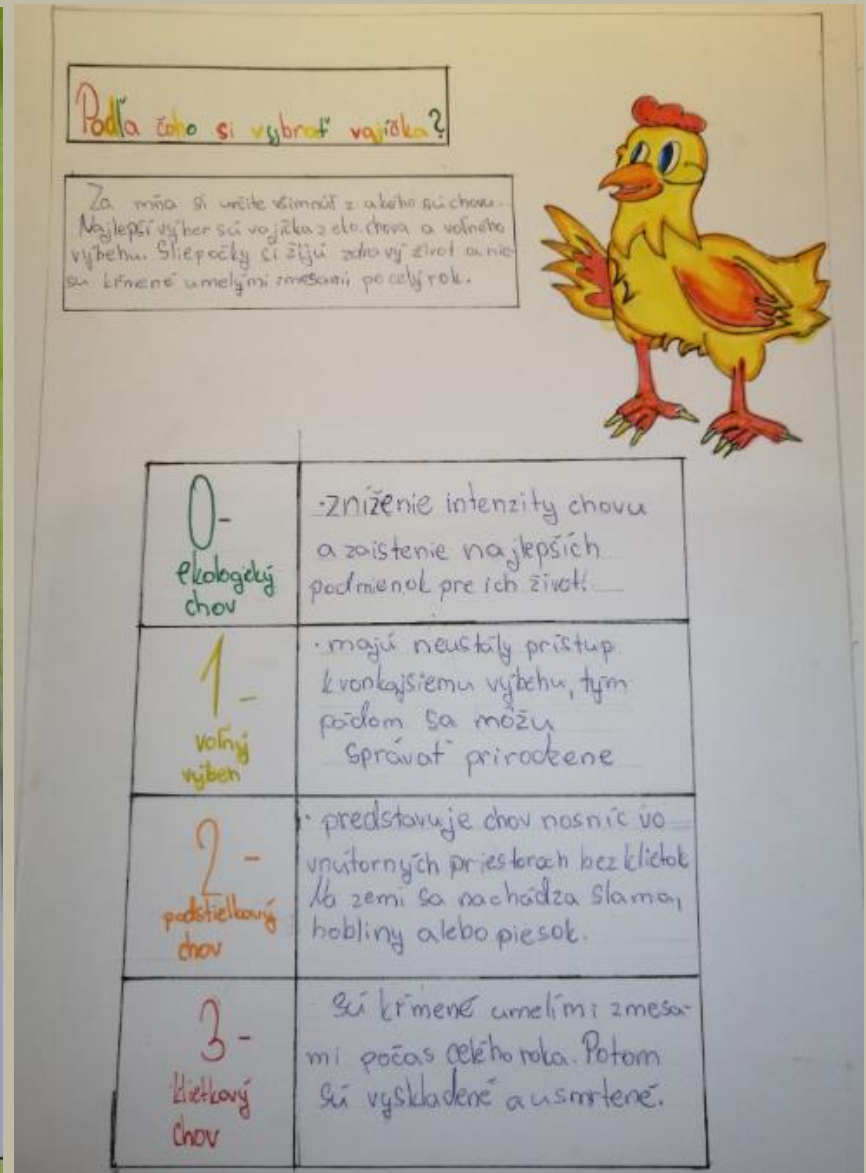 Podľa čoho si vybrať vajíčka?
Za mňa si určite všimnúť z akého sú chovu.
Najlepší výber sú vajíčka z eko. chova a voľného
výbehu. Sliepočky si žijú zdravý život a nie
sú kŕmené umelými zmesami po celý rok.
0-
ekologický
chov
·zníženie intenzity chovu
a zaistenie najlepších
podmienok pre ich život.
1-
voľný
výbeh
·majú neustály prístup
k vonkajsiemu výbehu, tým
pádom sa môžu
správať prirodzene
2-
podstielkový
chov
·predstavuje chov nosníc vo
vnútorných priestoroch bez klietok
Na zemi sa nachádza slama,
hobliny alebo piesok.
3-
klietkový
chov
Sú kŕmené umelími zmesa-
mi počas celého roka. Potom
sú vyskladené a usmrtené.